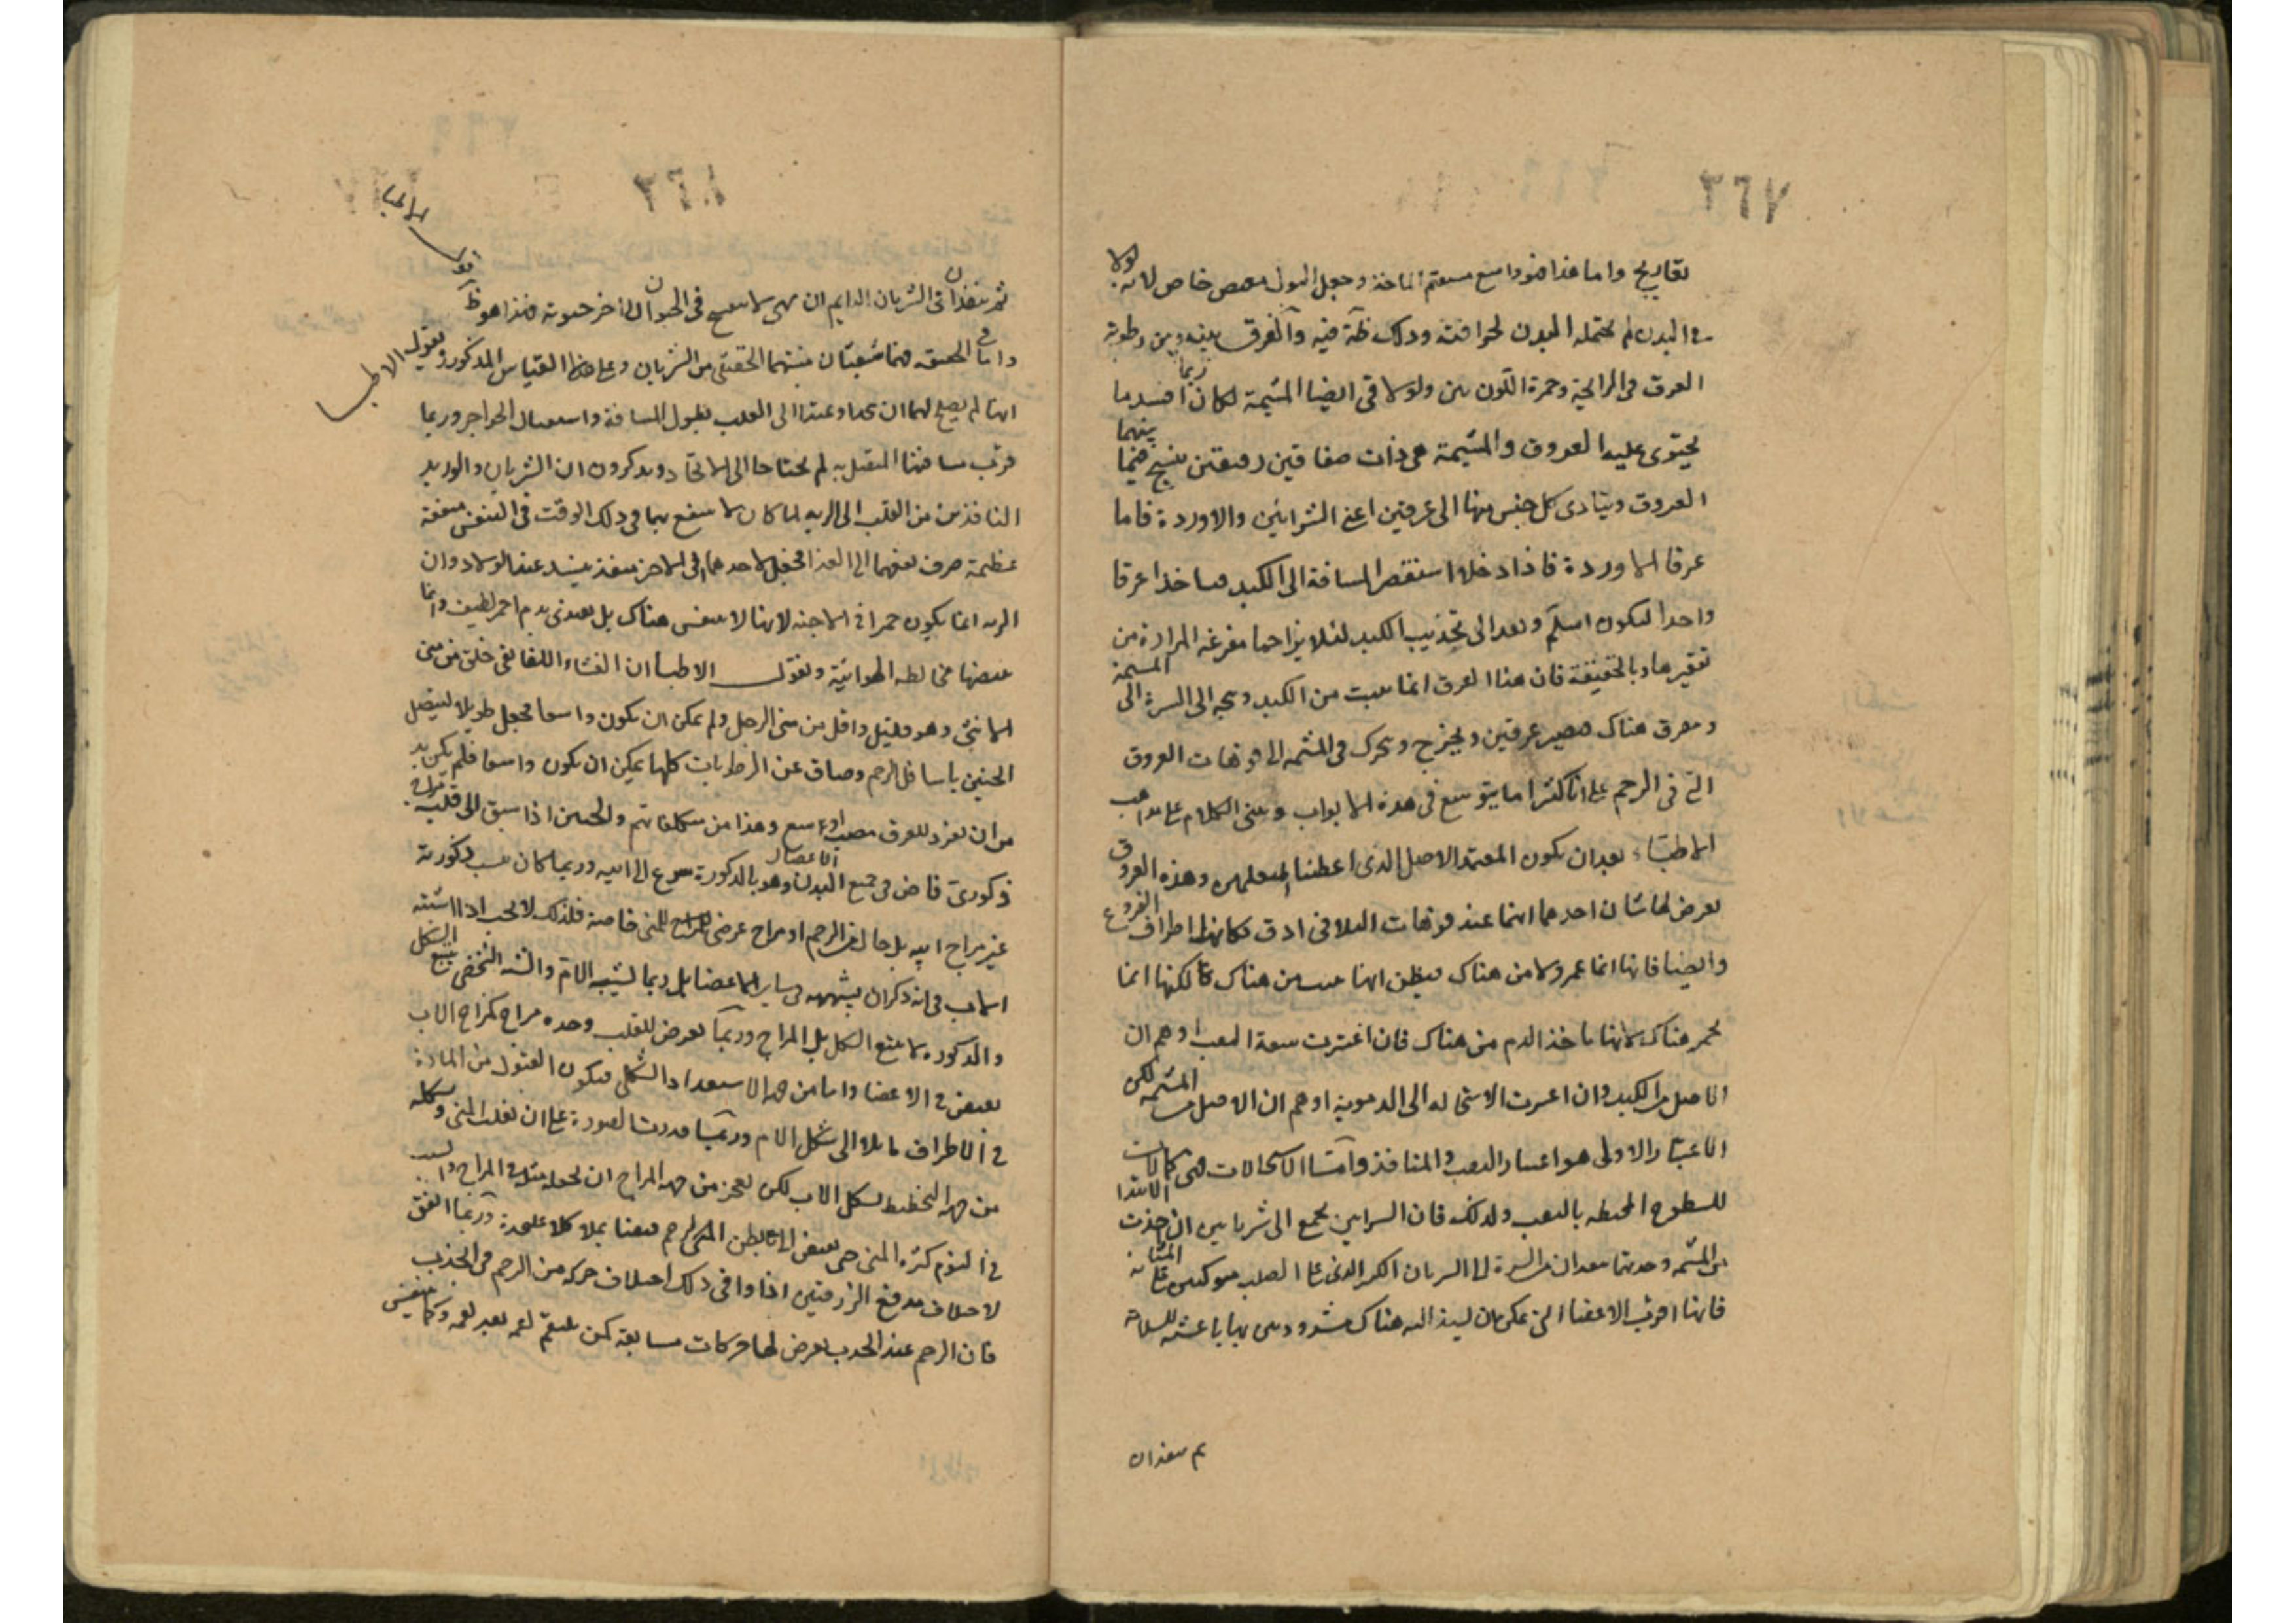 ٣٦٧
تقاريح واما هذا فهو واسع مستقيم المأخذ وجعل البول مصب خاص لانه لولا
في البدن لم يحتمله البدن لحرافته وذلك ظاهر فيه والفرق بينه وبين رطوبة
العرق في الرائحة وحمرة اللون بين ولو لاقى ايضا المشيمة لكان ربما افسد ما
يحتوى عليه العروق والمشيمة هي ذات صفاقين رقيقين ينسج فيما بينهما
العروق ويتادى كل جنس منها الى عرقين اعنى الشرايين والاوردة فاما
عرقا الاوردة فاذا دخلا استقصر المسافة الى الكبد فاخذا عرقا
واحدا ليكون اسلم ونفذا الى تحديب الكبد لئلا يزاحما مفرغة المرارة من
تقعيرها وبالحقيقة فان هذا العرق انما ينبت من الكبد ويتجه الى السرة الى المشيمة
ويتفرق هناك فيصير عرقين ويخرج ويتحرك في المشيمة الى فوهات العروق
التي في الرحم على انا كثيرا ما نتوسع في هذه الابواب ونبنى الكلام على مذاهب
الاطباء بعد ان يكون المعتمد الاصل الذى اعطينا المتعلمين وهذه العروق
يعرض لها شيئان احدهما انها عند فوهات التلاقى ادق فكانها اطراف الفروع
وايضا فانها انما تحمر اولا من هناك فيظن انها نبتت من هناك لكنها انما
تحمر هناك لانها تاخذ الدم من هناك فان اعتبرت سعة الثقب اوهم ان
الاصل من الكبد وان اعتبرت الاستحالة الى الدموية اوهم ان الاصل من المشيمة لكن
الاعتبار الاولى هو اعتبار الثقب والمنافذ واما الاستحالات فهى كمالات
للسطوح المحيطة بالثقب ولذلك فان الشرايين تجمع الى شريانين ان اخذت الابتدا
من المشيمة وجدتهما ينفذان من السرة الى الشريان الكبير الذى على الصلب متوكئين على المثانة
فانها اقرب الاعضا التي يمكن ان يستند اليه هناك مشدودين بها باغشية للسلامة
ثم ينفذان
٣٦٨
ثم ينفذان في الشريان الدايم ان نهى لا ينفسخ في الحيوان الى اخر حيوته فهذا هو ظاهر قول الاطبا
واما في الحقيقة فهما شعبتان منبتهما الحقيقى من الشريان وعلى هذا القياس المذكور ويقول الاطبا
انها لم يصلح لهما ان يتحدا ويمتدا الى القلب لطول المسافة واستقبال الحواجز وربما
قرب مسافتها المتصل به لم يحتاجا الى الاتحاد ويذكرون ان الشريان والوريد
النافذين من القلب الى الرية لما كان لا ينتفع بهما في ذلك الوقت في التنفس منفعة
عظيمة صرف نفعهما الى الغذا فجعل لاحدهما الى الاخر منفذ ينسد عند الولاد وان
الرية انما يكون حمرا في الاجنة لانها لا تتنفس هناك بل تغتذى بدم احمر لطيف وانما
تبيضها مخالطة الهوائية ويقول الاطبا ان الغشاء اللفائفى خلق من منى
الانثى وهو قليل واقل من منى الرجل ولم يمكن ان يكون واسعا فجعل طويلا ليتصل
الجنين باسافل الرحم وضاق عن الرطوبات كلها يمكن ان يكون واسعا فلم يكن بد
من ان يفرد للعرق مصب واسع وهذا من تكلفاتهم والجنين اذا سبق الى قلبه مزاج
ذكورى فاض في جميع الاعضاء البدن وهو بالذكورة ينزع الى ابيه وربما كان سبب ذكورته
غير مزاج ابيه بل حال من الرحم او مزاج عرضى للمنى خاصة فلذلك لا يجب اذا اشبه
الاب في انه ذكر ان يشبهه في ساير الاعضا بل ربما يشبه الام والشبه الشخصى يتبع الشكل
والذكورة لا تتبع الشكل بل المزاج وربما يعرض للقلب وحده مزاج كمزاج الاب
يفيض في الاعضا واما من جهة الاستعداد الشكلى فيكون القبول من المادة
في الاطراف مايلا الى شكل الام وربما قدرت المصورة على ان تغلب المنى وتشكله
من جهة التخطيط بشكل الاب لكن تعجز من جهة المزاج ان تجعله مثله في المزاج والسبب
في التوءم كثرة المنى حتى يفيض الى بطنى الرحم فيضا يملا كلا على حدة وربما اتفق
لاختلاف مدفع الزرقتين اذا وافى ذلك اختلاف حركة من الرحم في الجذب
فان الرحم عند الجذب يعرض لها حركات متتابعة كمن يلتقم لقمة بعد لقمة وكما يتنفس